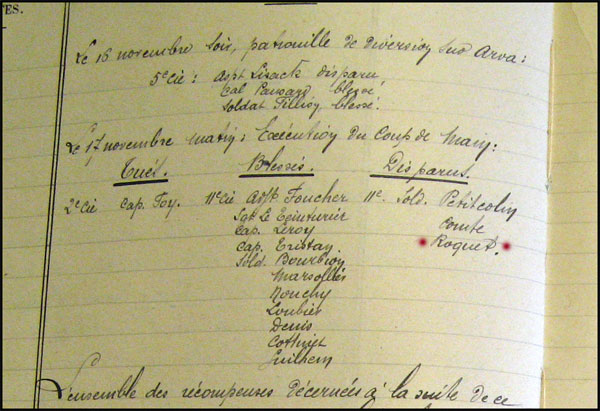 ES.
Le 16 novembre soir, patrouille de diversion sur Arva:
5e Cie: Asp Lisack disparu
Cal blessé
Soldat blessé.
Le 17 novembre matin: Exécution du Coup de Main:
Tués. Blessés. Disparus.
2e Cie Cap. Foy. 11e Cie Adjt Foucher 11e. Sold. Petitcolin
Sgt Le Teinturier Comte
Cap. Leroy Roquet.
Cap. Tristan.
Sold. Bourbion
Marsollés
Nouchy
Loubies
Denis
Cottinet
Guilhem
L'ensemble des récompenses décernées à la suite de ce